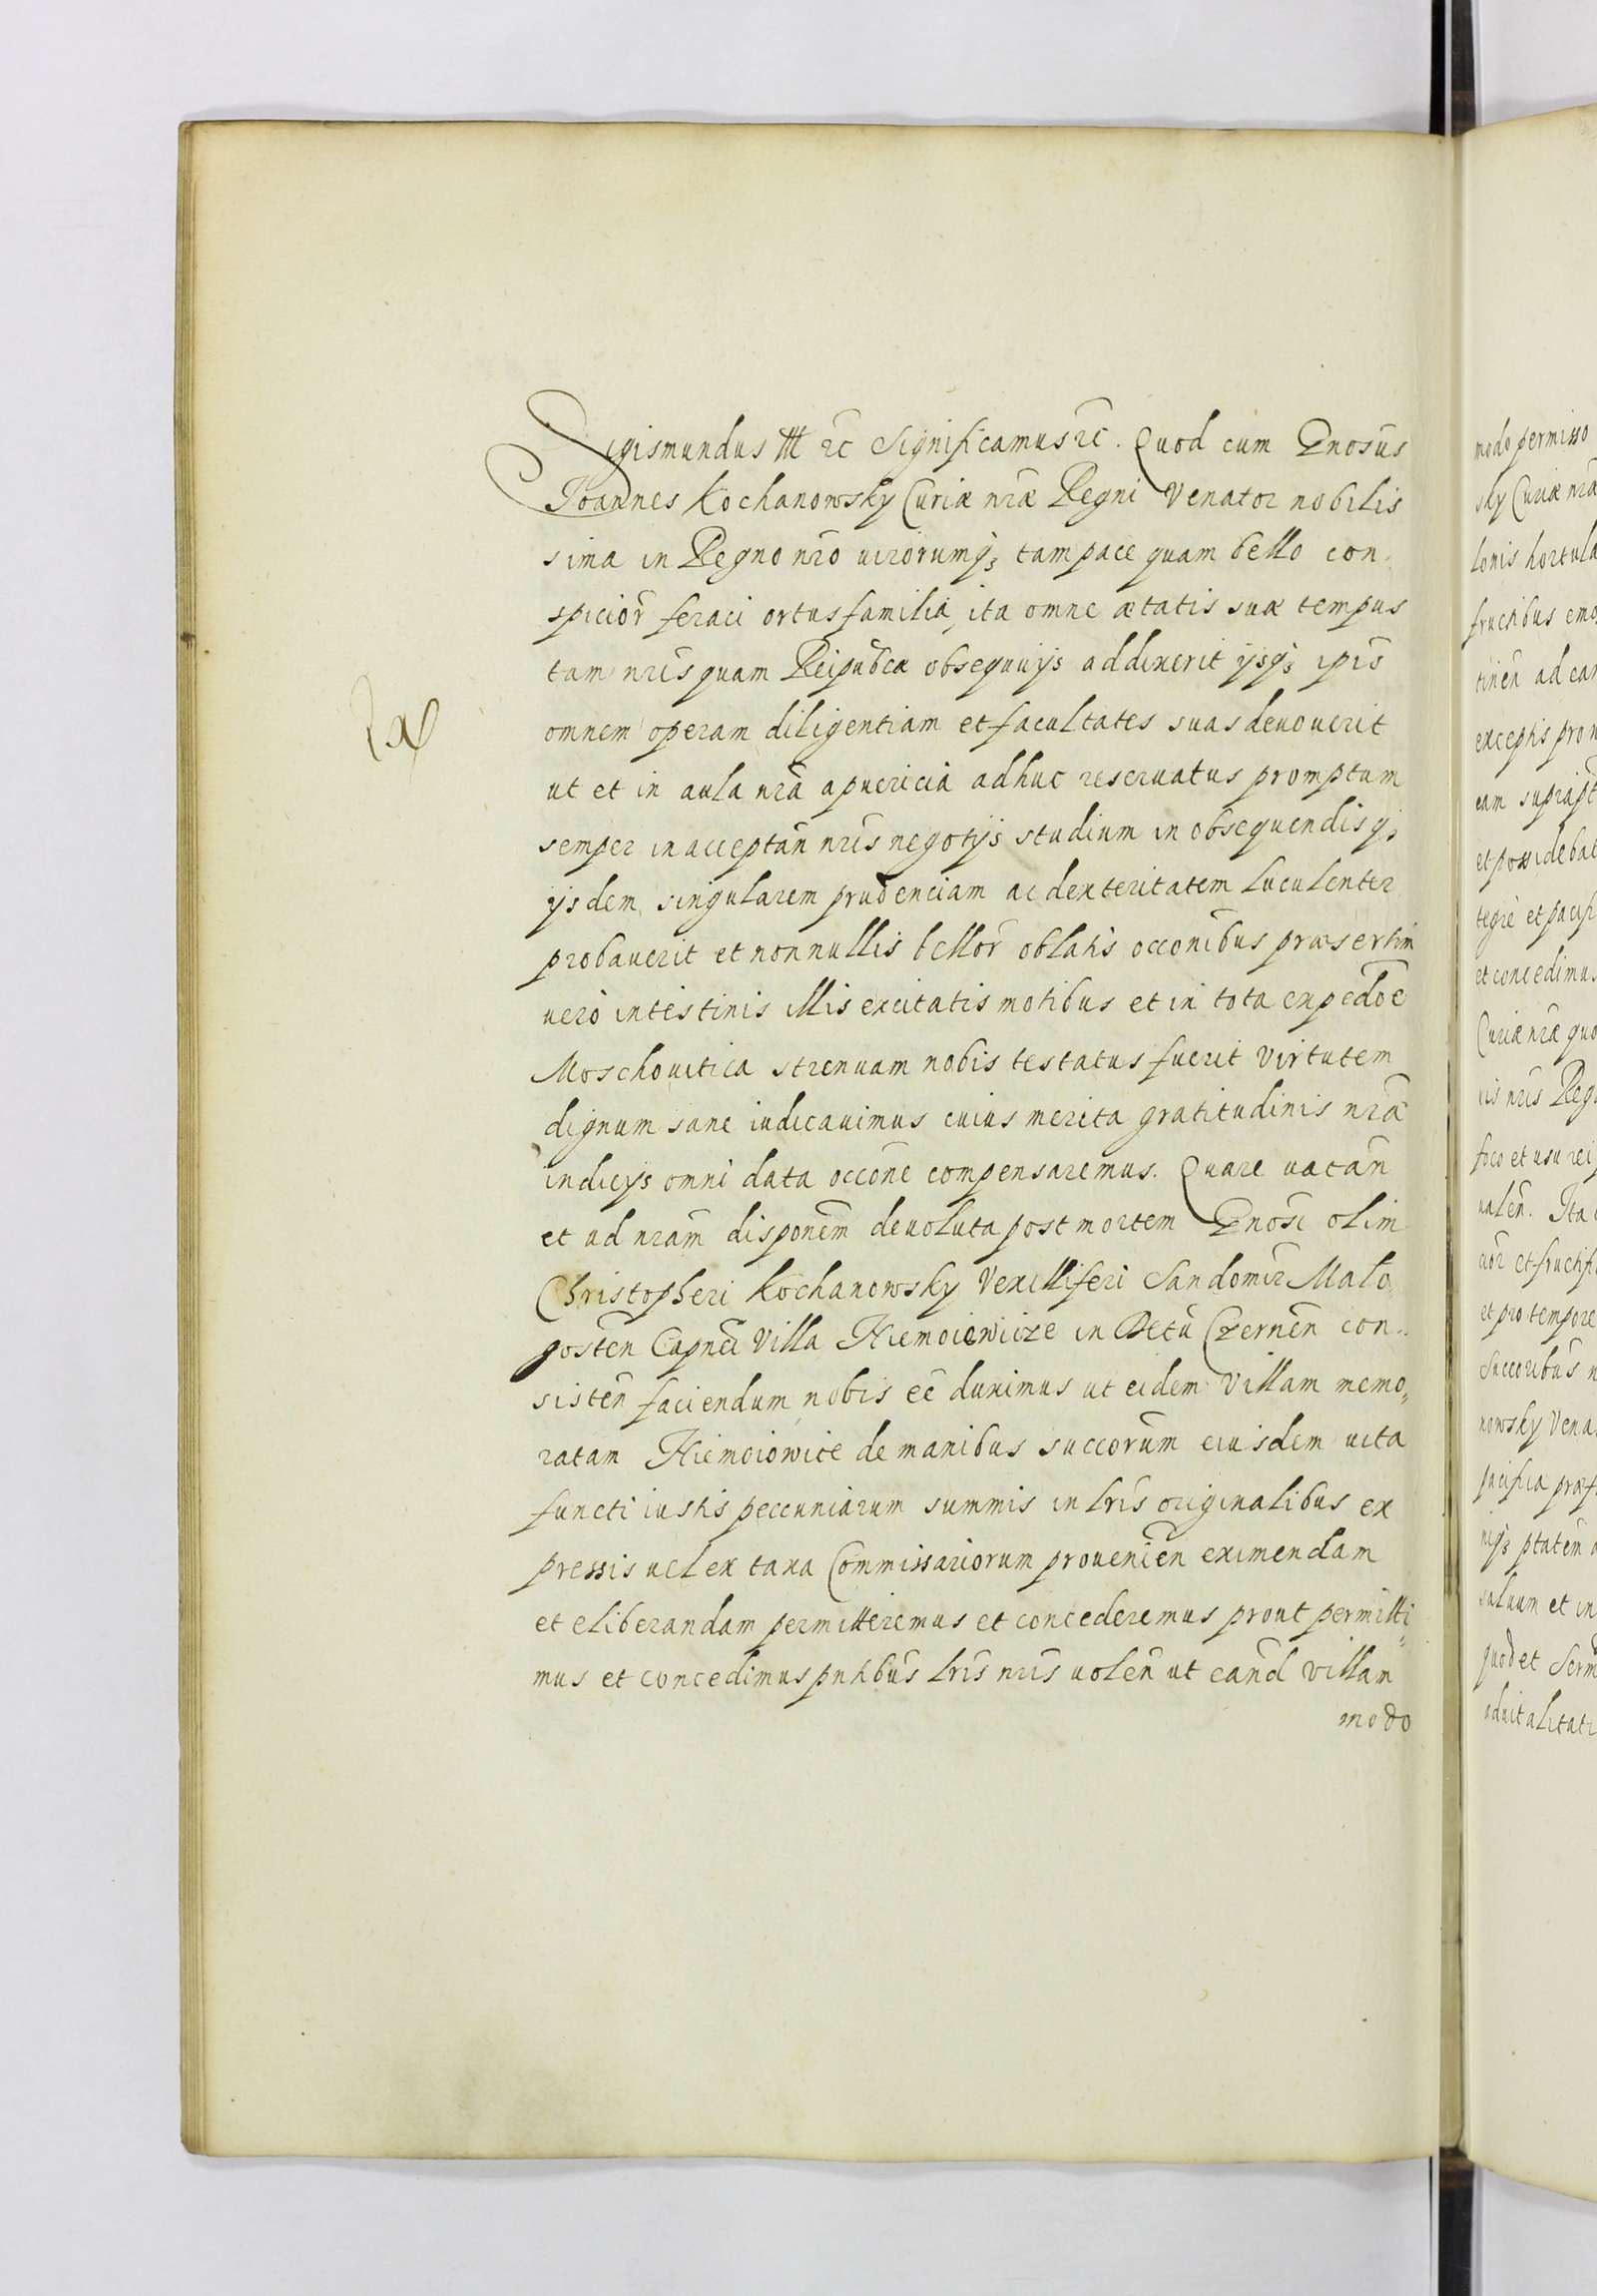 Sigismundus III etc Significamus etc. Quod cum Gnosus
Joannes Kochanowsky Curiæ nræ Regni Venator nobilis
sima in Regno nro virorumq; tam pace quam bello con
spicior feraci ortus familia, ita omne ætatis suæ tempus
tam nris quam Reipubcæ obsequijs addixerit ijsq; ipis
omnem operam diligentiam et facultates suas devoverit
ut et in aula nra a puericia adhuc reservatus promptum
semper in acceptan nris negotijs studium in obsequendisq;
ijsdem singularem prudenciam ac dexteritatem luculenter
probaverit et nonnullis bellor oblatis occonibus præsertim
vero intestinis illis excitatis motibus et in tota expedoe
Moschovitica strenuam nobis testatus fuerit virtutem
dignum sane iudicavimus cuius merita gratitudinis nræ
indicijs omni data occone compensaremus. Quare vacan
et ad nram disponem devoluta post mortem Gnosi olim
Christopheri Kochanowsky Vexilliferi Sandomir Malo
gosten Capnei Villa Niemoiewicze in Dctu Czernen con
sisten faciendum nobis ee duximus ut eidem Villam memo
ratam Niemoiowice de manibus succorum eiusdem vita
functi iustis peccuniarum summis in lris originalibus ex
pressis vel ex taxa Commissariorum provenien eximendam
et eliberandam permitteremus et concederemus prout permitti
mus et concedimus pntibus lris nris volen ut eand villam
modo
modo permisso
sky Curiæ nræ
lonis hortula
fructibus emo
tinen ad ean
exceptis pro n
eam suprapt
et possidebat
tegre et pacifi
et concedimus
Curiæ nræ quo
iis nris Reg
foco et usu rei
valen. Ita
et fructifi
et pro tempore
Succoribus n
nowsky Vena
pacifica præf
niq; ptatem
salvum et in
quod et Serm
advitalitati